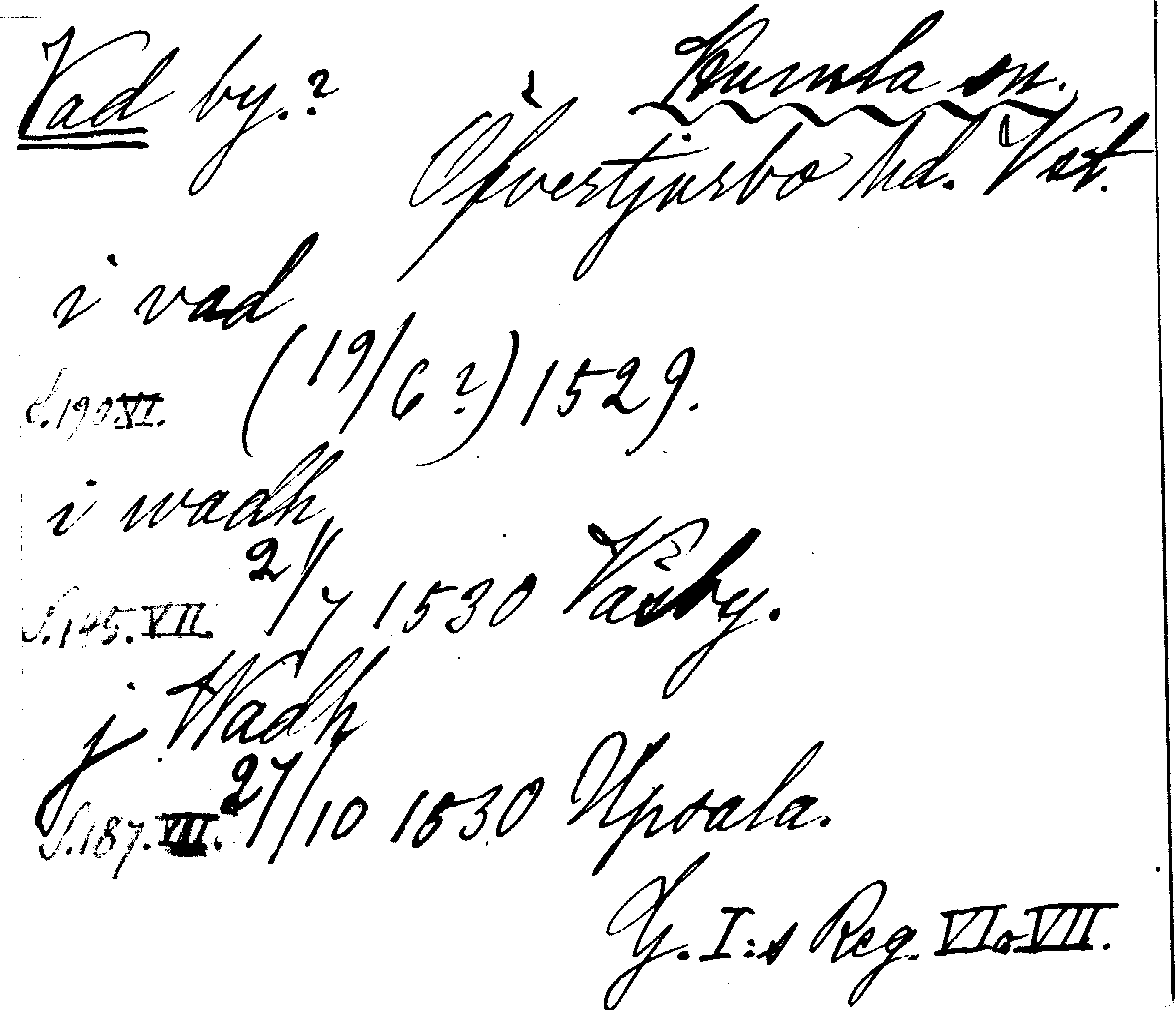 Vad by.? Kumla sn.
Öfvertjurbo hd. Vst.
i vad
S.190 VI. (19/6 ?) 1529.
i wadh
S.145. VII. 2/7 1530 Väsby.
j Wadh
S.187. VII. 27/10 1530 Upsala.
G. I:s Reg. VI o VII.